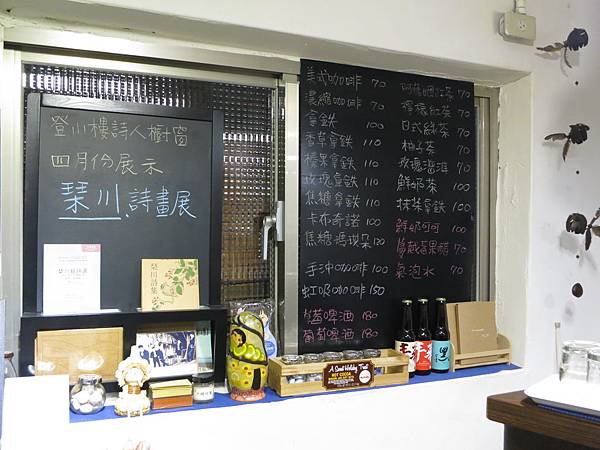 登小樓詩人櫥窗
四月份展示
琹川 詩畫展
美式咖啡 70
濃縮咖啡 70
拿鐵 100
香草拿鐵 110
榛果拿鐵 110
玫瑰拿鐵 110
焦糖拿鐵 110
卡布奇諾 100
焦糖瑪琪朵 120
手沖咖啡 100
虹吸咖啡 150
啤酒 180
葡萄啤酒 180
阿薩姆紅茶 70
檸檬紅茶 70
日式綠茶 70
柚子茶 70
玫瑰普洱 70
鮮奶茶 100
抹茶拿鐵 100
鮮奶可可 100
蔓越莓果醋 70
氣泡水 70
琹川詩集
A Sweet Holiday Treat
HOT COCOA
黑